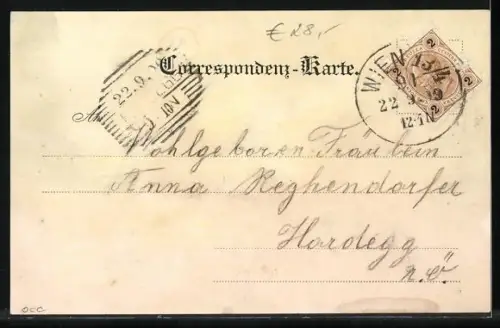 € 28,-
Correspondenz-Karte.
WIEN 13/4
22 9
12-1N
2 2 2
22.9.
10V
An
Wohlgeboren Fräulein
Anna Reghendorfer
Hardegg
n.ö.